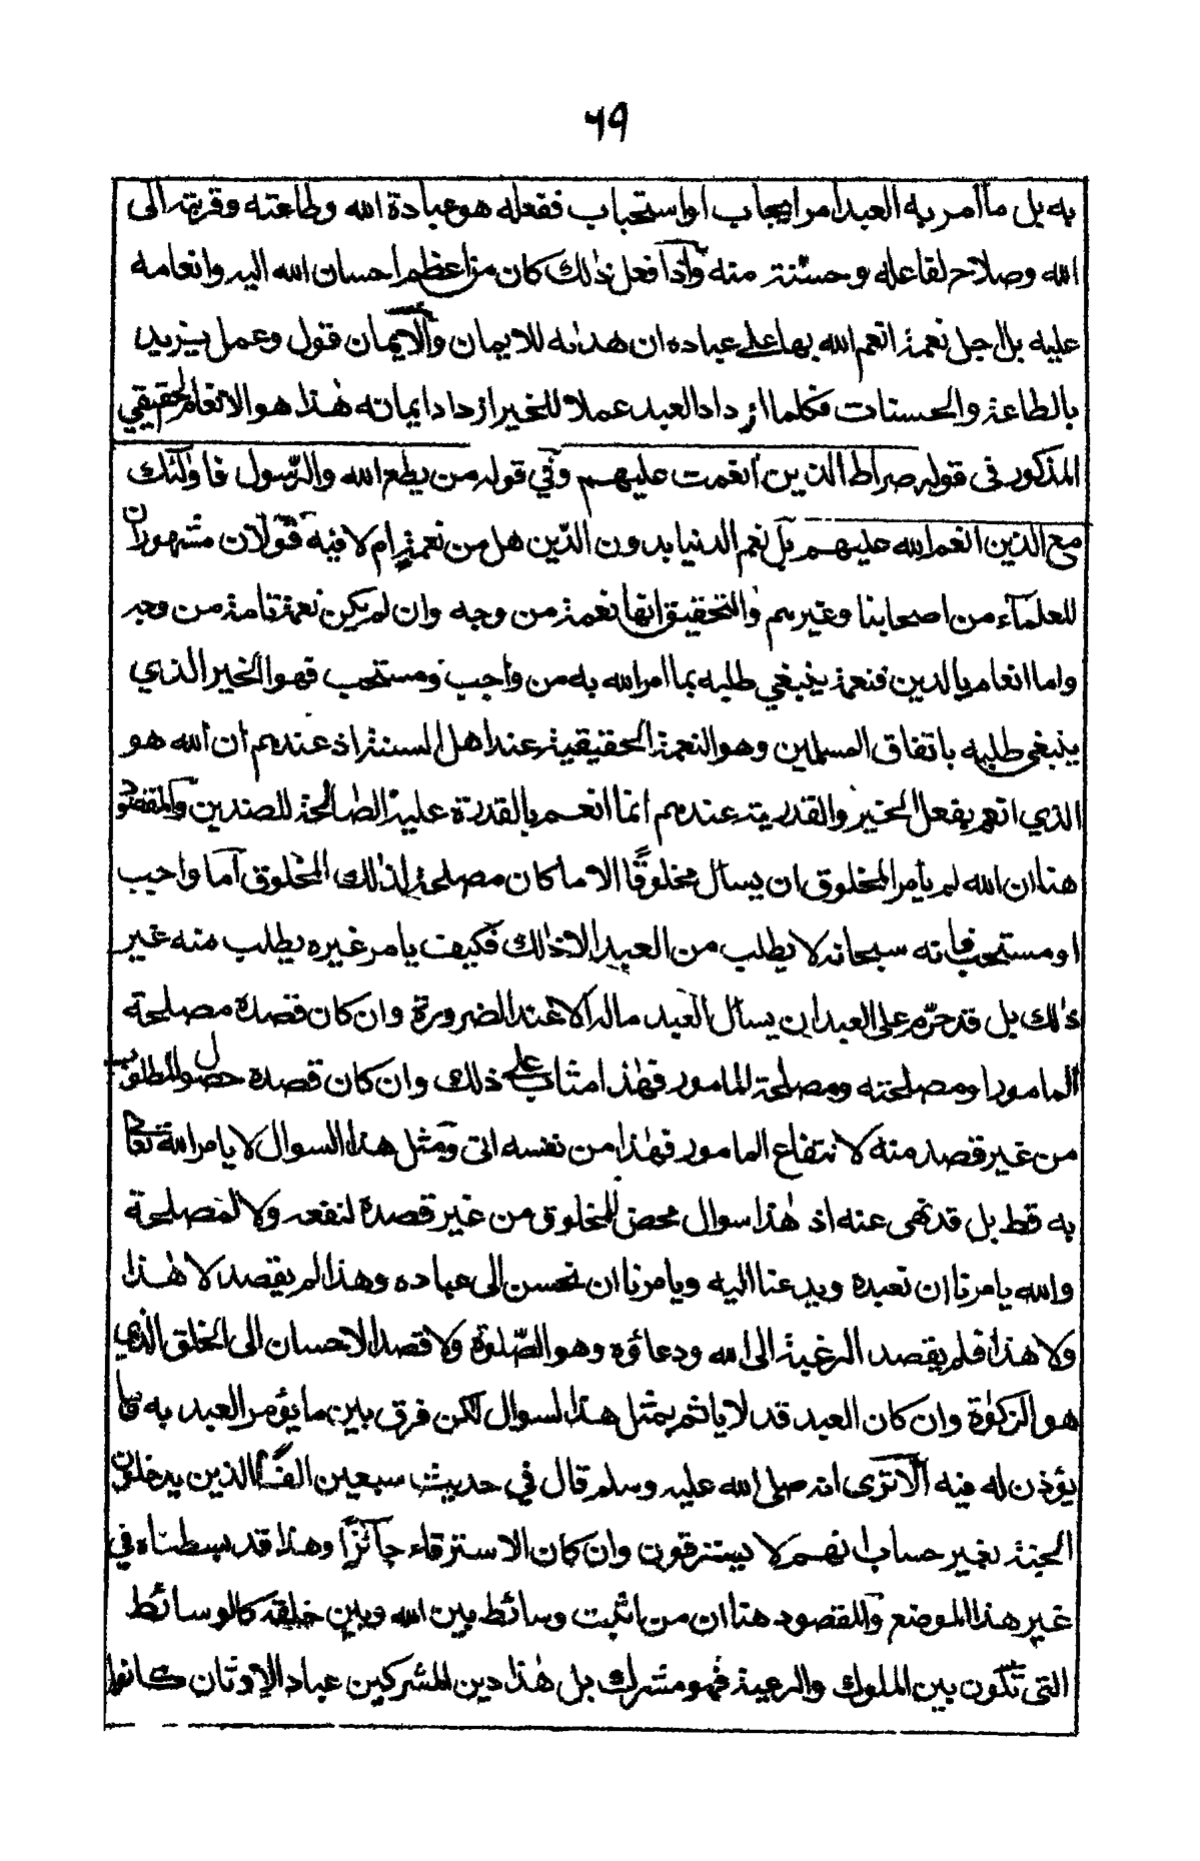 ٦٩
به بل ما أمر به العبد امر ايجاب او استحباب ففعله هو عبادة الله وطاعته وقربته الى
الله وصلاح لفاعله وحسنة منه واذا فعل ذلك كان من اعظم احسان الله اليه وانعامه
عليه بل اجل نعمة انعم الله بها على عباده ان هداه للايمان والايمان قول وعمل يزيد
بالطاعة والحسنات فكلما ازداد العبد عملا للخير ازداد ايمانه هذا هو الانعام الحقيقي
المذكور فى قوله صراط الذين أنعمت عليهم وفي قوله من يطع الله والرّسول فاولئك
مع الذين انعم الله عليهم بل نعم الدنيا بدون الدّين هل من نعمة ام لا فيه قولان مشهوران
للعلمآء من اصحابنا وغيرهم والتحقيق انها نعمة من وجه وان لم يكن نعمة تامة من وجه
واما انعام بالدين فنعمة ينبغي طلبه بما امر الله به من واجب ومستحب فهو الخير الذي
ينبغي طلبه باتفاق المسلمين وهو النعمة الحقيقية عند اهل السنة اذ عندهم ان الله هو
الذي انعم بفعل الخير والقدرية عندهم انما انعم بالقدرة عليه الصالحة للضدين والمقصود
هنا ان الله لم يأمر المخلوق ان يسأل مخلوقًا الا ما كان مصلحة لذلك المخلوق اما واجب
او مستحب فانه سبحانه لا يطلب من العبد الا ذلك فكيف يامر غيره يطلب منه غير
ذلك بل قد حرّم على العبد ان يسأل العبد ماله الا عند الضرورة وان كان قصده مصلحة
المامور او مصلحته ومصلحة المامور فهذا مثاب على ذلك وان كان قصده حصول المطلوب
من غير قصد منه لانتفاع المامور فهذا من نفسه اتى ومثل هذا السوال لا يامر الله تعالى
به قط بل قد نهى عنه اذ هذا سوال محض للمخلوق من غير قصده لنفعه ولا لمصلحة
والله يامرنا ان نعبده ويدعنا اليه ويامرنا ان نحسن الى عباده وهذا لم يقصد لا هذا
ولا هذا فلم يقصد الرغبة الى الله ودعاؤه وهو الصّلوة ولا قصد الاحسان الى الخلق الذي
هو الزكوٰة وان كان العبد قد لا ياثم بمثل هذا لسوال لكن فرق بين ما يؤمر العبد به وما
يؤذن له فيه الا ترى انه صلى الله عليه وسلم قال في حديث سبعين الفًا الذين يدخلون
الجنة بغير حساب انهم لا يسترقون وان كان الاسترقاء جآئزًا وهذا قد بسطناه في
غير هذا الموضع والمقصود هنا ان من اثبت وسائط بين الله وبين خلقه كالوسائط
التى تكون بين الملوك والرعية فهو مشرك بل هذا دين المشركين عباد الاوثان كانوا